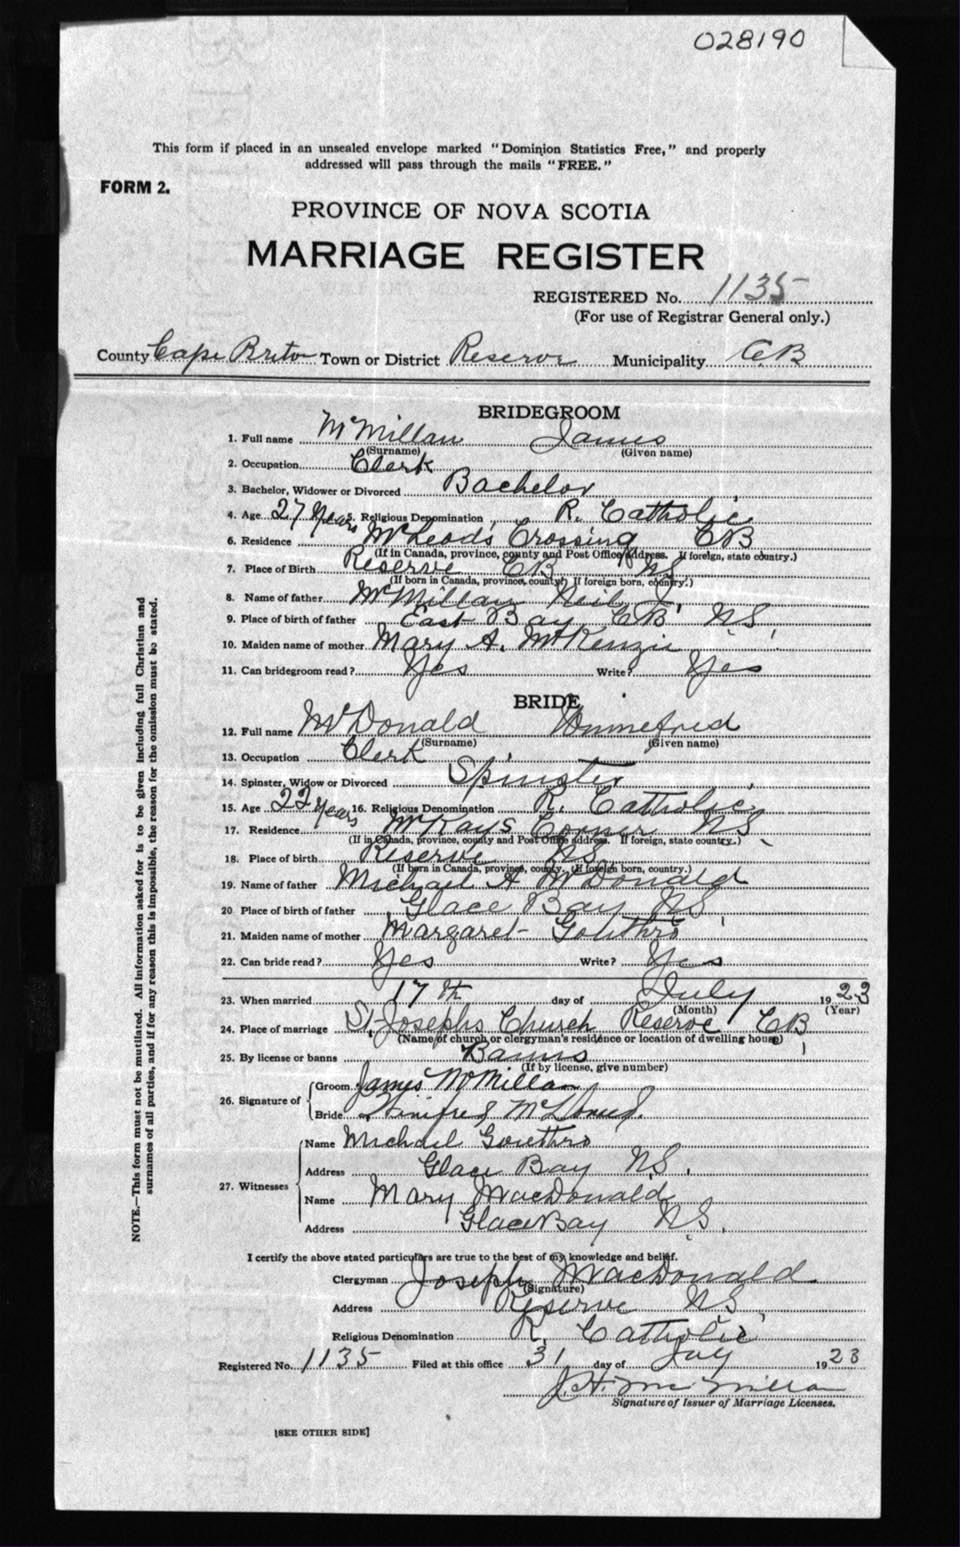 028190
This form if placed in an unsealed envelope marked "Dominion Statistics Free," and properly
addressed will pass through the mails "FREE."
FORM 2.
PROVINCE OF NOVA SCOTIA
MARRIAGE REGISTER
REGISTERED No. 1135
(For use of Registrar General only.)
County Cape Breton Town or District Reserve Municipality CB
BRIDEGROOM
1. Full name McMillan James
(Surname) (Given name)
2. Occupation Clerk
3. Bachelor, Widower or Divorced Bachelor
4. Age 27 Years 5. Religious Denomination R. Catholic
6. Residence McLeods Crossing CB
(If in Canada, province, county and Post Office address. If foreign, state country.)
7. Place of Birth Reserve CB NS
(If born in Canada, province, county. If foreign born, country.)
8. Name of father McMillan Neil J
9. Place of birth of father East Bay CB NS
10. Maiden name of mother Mary A. McKenzie
11. Can bridegroom read? Yes Write? Yes
BRIDE
12. Full name McDonald Winnefred
(Surname) (Given name)
13. Occupation Clerk
14. Spinster, Widow or Divorced Spinster
15. Age 22 Years 16. Religious Denomination R. Catholic
17. Residence McKays Corner NS
(If in Canada, province, county and Post Office address. If foreign, state country.)
18. Place of birth Reserve NS
(If born in Canada, province, county. If foreign born, country.)
19. Name of father Michael A McDonald
20 Place of birth of father Glace Bay NS
21. Maiden name of mother Margaret Gouthro
22. Can bride read? Yes Write? Yes
23. When married 17th day of July 1923
(Month) (Year)
24. Place of marriage St. Josephs Church Reserve CB
(Name of church or clergyman's residence or location of dwelling house)
25. By license or banns Banns
(If by license, give number)
26. Signature of Groom James McMillan
Bride Winifred McDonald.
27. Witnesses Name Michael Gouthro
Address Glace Bay NS.
Name Mary MacDonald
Address Glace Bay NS.
I certify the above stated particulars are true to the best of my knowledge and belief.
Clergyman Joseph MacDonald
(Signature)
Address Reserve NS
Religious Denomination R. Catholic
Registered No. 1135 Filed at this office 31 day of July 1923
J. H. McMillan
Signature of Issuer of Marriage Licenses.
[SEE OTHER SIDE]
NOTE.—This form must not be mutilated. All information asked for is to be given including full Christian and
surnames of all parties, and if for any reason this is impossible, the reason for the omission must be stated.